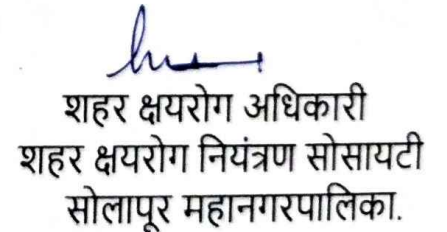 शहर क्षयरोग अधिकारी
शहर क्षयरोग नियंत्रण सोसायटी
सोलापूर महानगरपालिका.